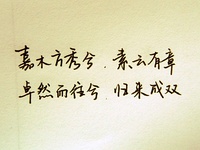 嘉木方秀兮.素云有章
卓然而往兮.归来成双